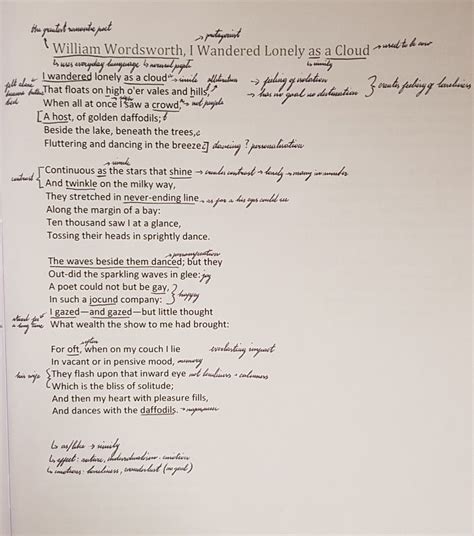 the greatest romantic poet
protagonist
William Wordsworth, I Wandered Lonely as a Cloud
↳ uses everyday language ↳ normal people
↳ simily
I wandered lonely as a cloud
simile alliteration → feeling of isolation
That floats on high o'er vales and hills,
→ has no goal no destination } creates feeling of loneliness
When all at once I saw a crowd,
not people
A host, of golden daffodils;
Beside the lake, beneath the trees,
Fluttering and dancing in the breeze.
dancing? personification
simile
contrast
Continuous as the stars that shine
And twinkle on the milky way,
They stretched in never-ending line
as far as his eyes could see
Along the margin of a bay:
Ten thousand saw I at a glance,
Tossing their heads in sprightly dance.
The waves beside them danced; but they
Out-did the sparkling waves in glee:
joy
A poet could not but be gay,
In such a jocund company:
happy
I gazed—and gazed—but little thought
stared for a long time
What wealth the show to me had brought:
often
For oft, when on my couch I lie
everlasting impact
In vacant or in pensive mood,
memory
They flash upon that inward eye
not loneliness → calmness
his wife
Which is the bliss of solitude;
And then my heart with pleasure fills,
And dances with the daffodils.
↳ as/like → simily
↳ effect: nature, individualism, emotion
↳ emotions: loneliness, wanderlust (no goal)